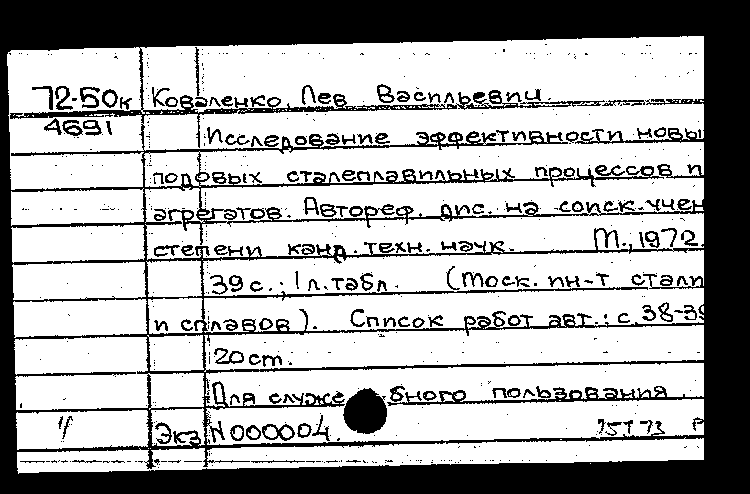 72-50к Коваленко, Лев Васильевич.
4691 Исследование эффективности новы
подовых сталеплавильных процессов п
агрегатов. Автореф. дис. на соиск. учен
степени канд. техн. наук. М., 1972.
39 с.; 1 л. табл. (Моск. ин-т стали
и сплавов). Список работ авт.: с. 38-39
20 ст.
Для служебного пользования.
4 Экз N 000004.